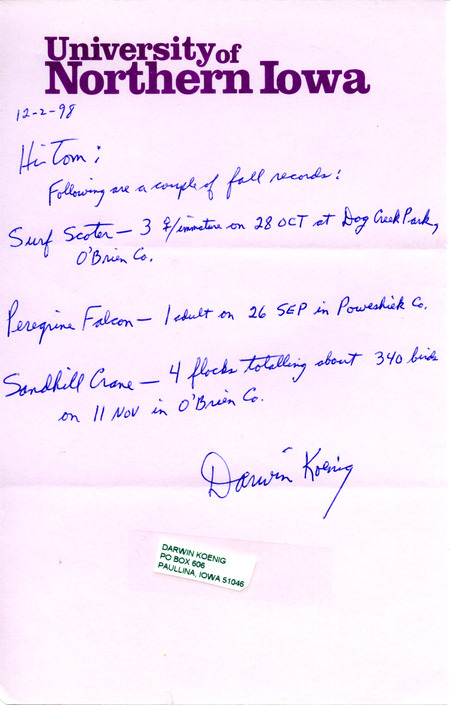 University of
Northern Iowa
12-2-98
Hi Tom:
Following are a couple of fall records:
Surf Scoter — 3 ♀/immature on 28 OCT at Dog Creek Park,
O'Brien Co.
Peregrine Falcon — 1 adult on 26 SEP in Poweshiek Co.
Sandhill Crane — 4 flocks totalling about 340 birds
on 11 NOV in O'Brien Co.
Darwin Koenig
DARWIN KOENIG
PO BOX 606
PAULLINA, IOWA 51046